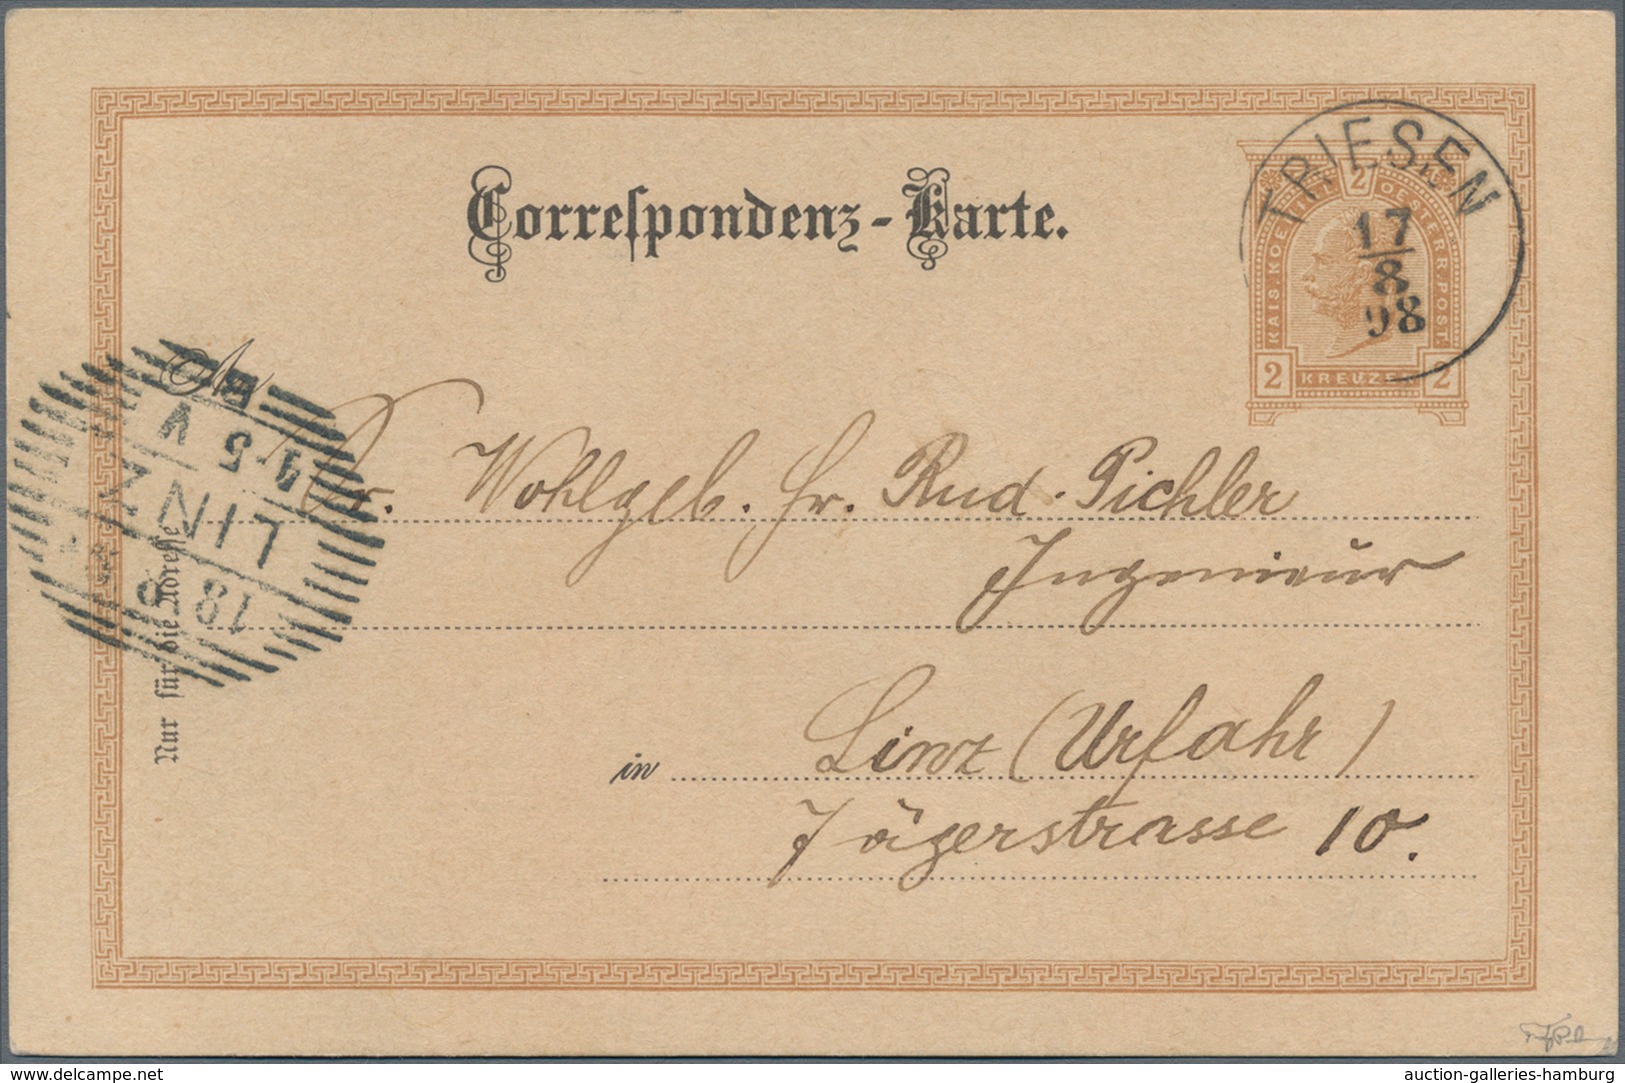 Correspondenz-Karte.
TRIESEN
17
8
98
KAIS KOENIGL 2 OESTERR POST
2 KREUZER 2
An
Sr. Wohlgeb. Hr. Rud. Pichler
Ingenieur
in Linz (Urfahr)
Jägerstrasse 10.
Nur für die Adresse
LINZ
18 8
4-5 V
delcampe.net
auction-galleries-hamburg